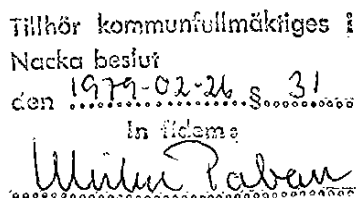 Tillhör kommunfullmäktiges
Nacka beslut
den 1979-02-26 § 31
In fidem: